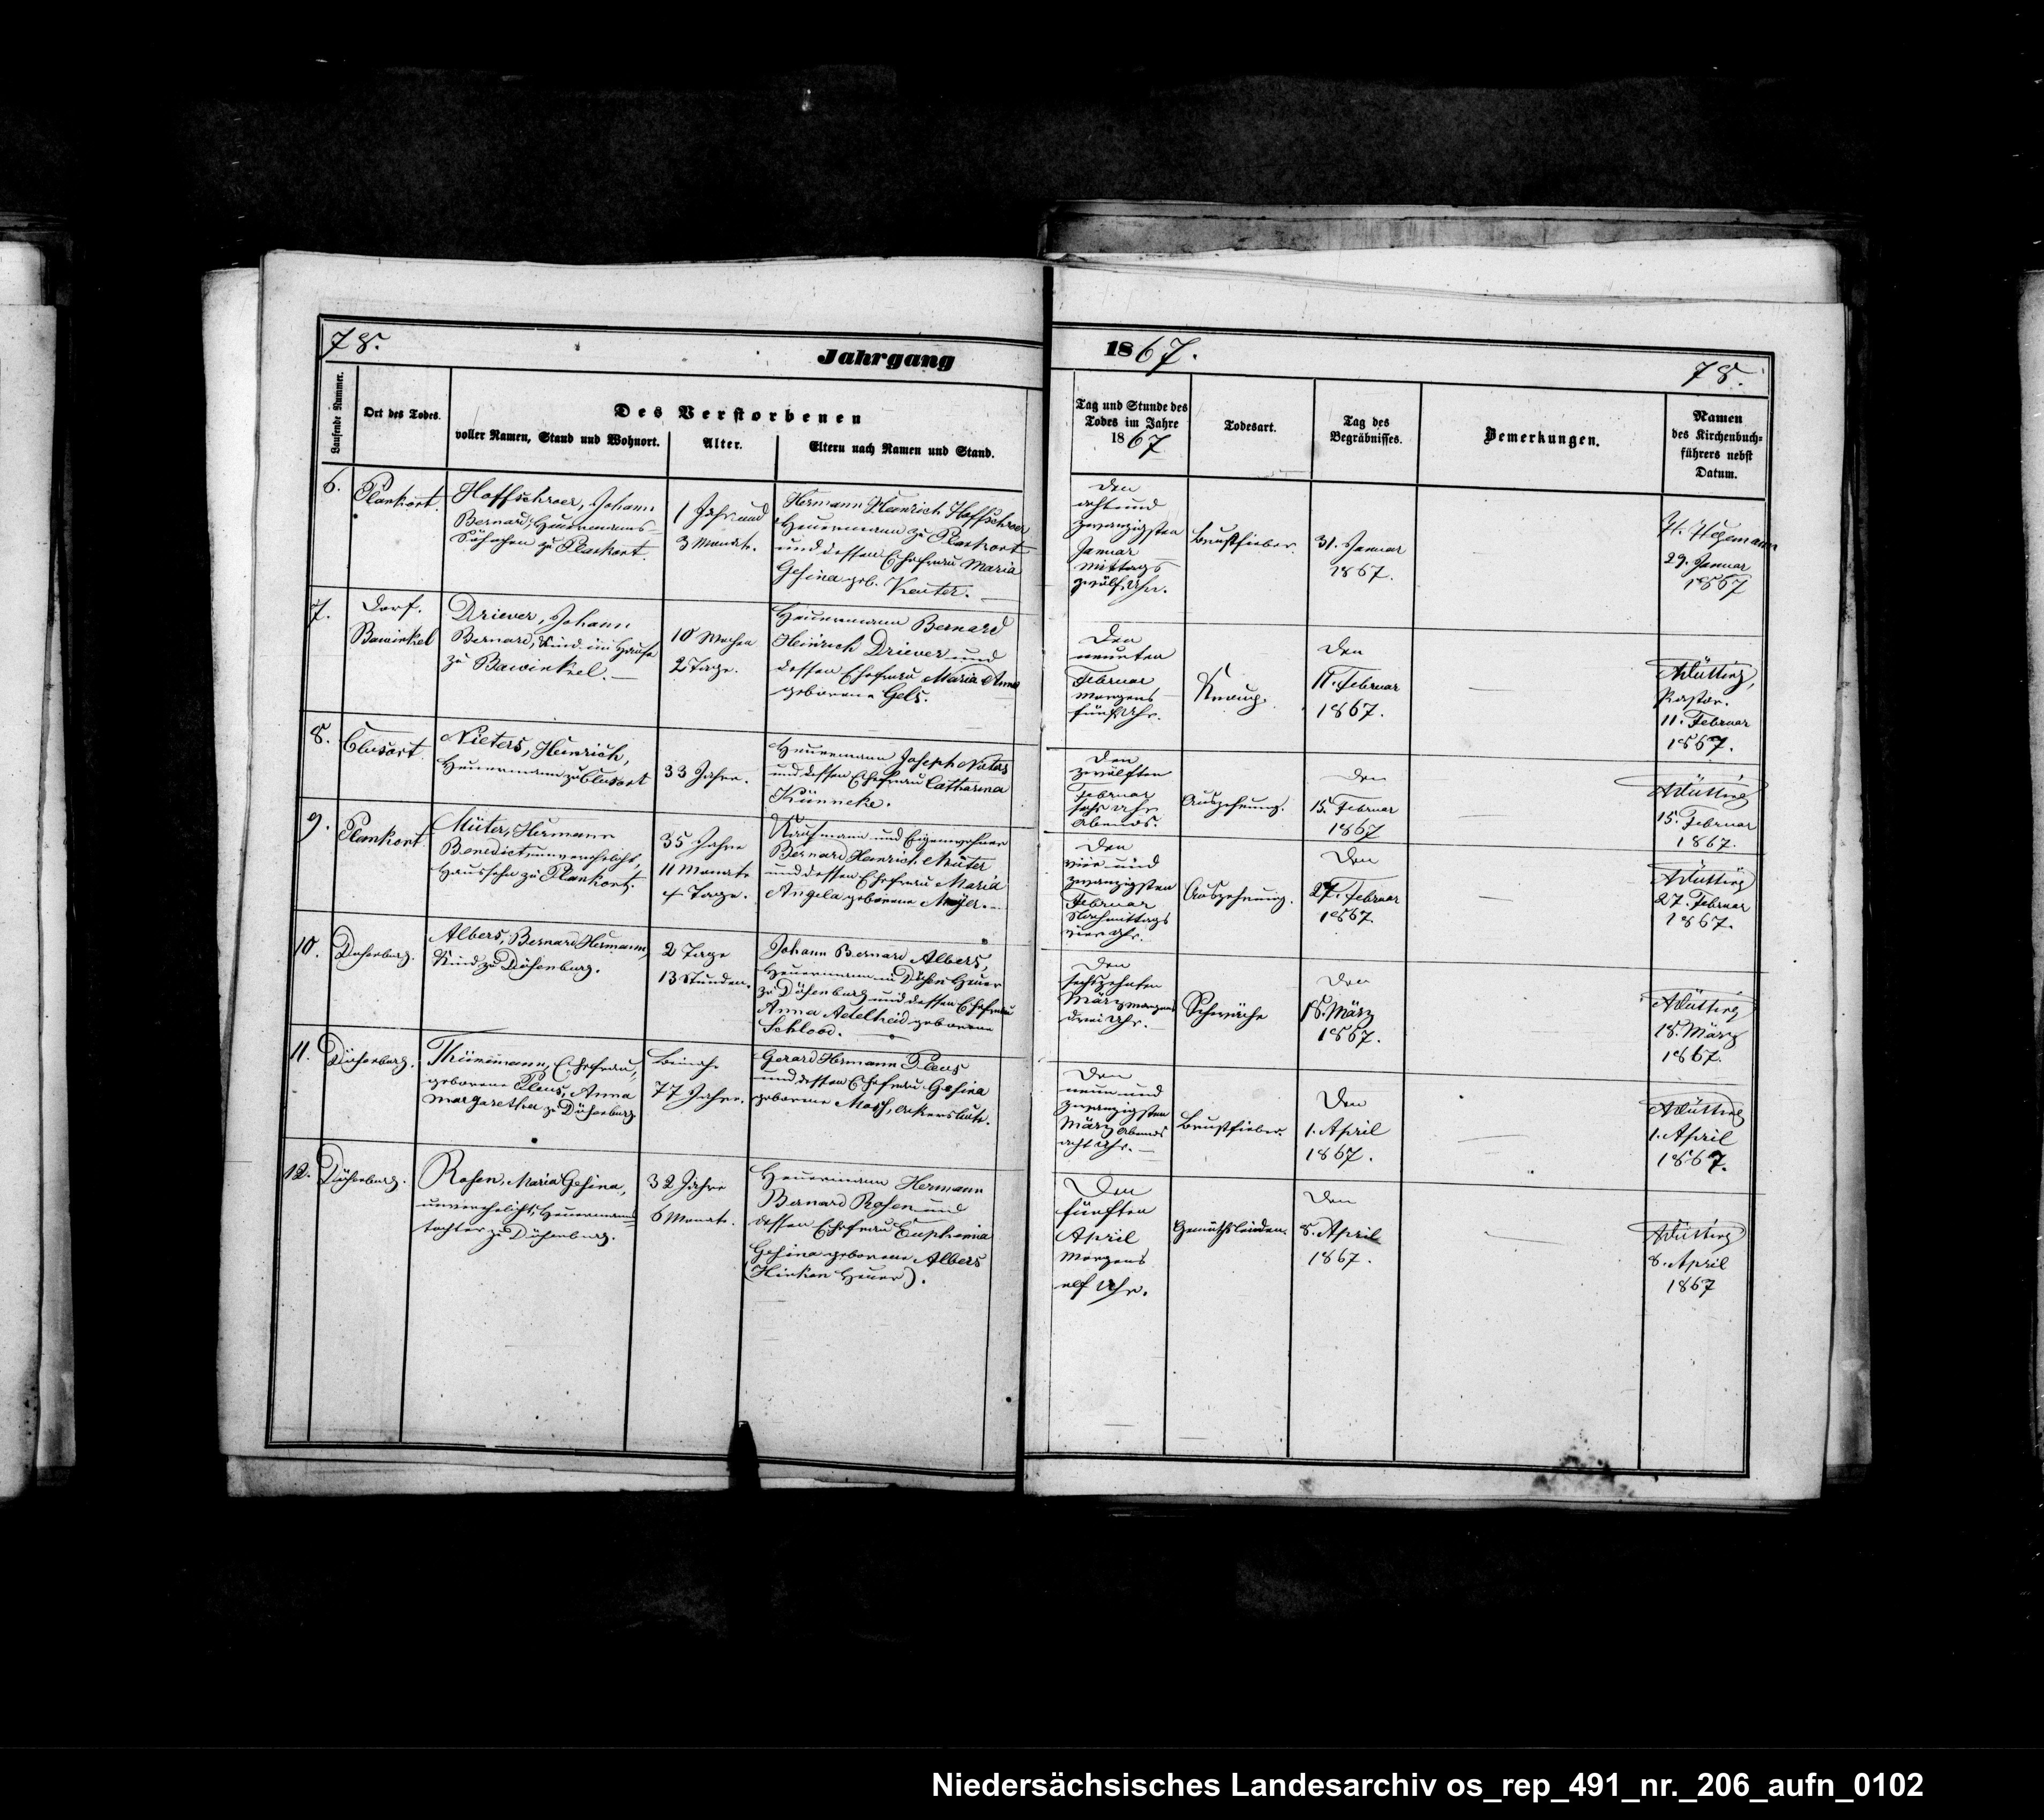 78.
Jahrgang
1867.
78.
Laufende Nummer.
Ort des Todes.
Des Verstorbenen
voller Namen, Stand und Wohnort.
Alter.
Eltern nach Namen und Stand.
Tag und Stunde des
Todes im Jahre
1867
Todesart.
Tag des
Begräbnisses.
Bemerkungen.
Namen
des Kirchenbuch-
führers nebst
Datum.
6.
Plankort.
Hoffschroer, Johann
Bernard, Heuermanns-
Söhnchen zu Plankort.
1 Jahr und
3 Monate.
Hermann Heinrich Hoffschroer
Heuermann zu Plankort
und dessen Ehefrau Maria
Gesina geb. Keuter. —
Den
acht und
zwanzigsten
Januar
Mittags
zwölf Uhr.
Brustfieber.
31. Januar
1867.
H. Hegemann
29. Januar
1867
7.
Dorf.
Bawinkel
Driever, Johann
Bernard, Kind im Hause
zu Bawinkel. —
10 Wochen
2 Tage.
Heuermann Bernard
Heinrich Driever und
dessen Ehefrau Maria Anna
geborene Gels.
Den
neunten
Februar
Morgens
fünf Uhr.
Den
11. Februar
1867.
—
ADütting,
Pastor.
11. Februar
1867.
8.
Clusort
Nieters, Heinrich,
Heuermann zu Clusort
33 Jahre.
Heuermann Joseph Nieters
und dessen Ehefrau Catharina
Künneke.
Den
zwölften
Februar
sechs Uhr
Abends.
Auszehrung.
Den
15. Februar
1867
—
ADütting
15. Februar
1867.
9.
Plankort
Müter, Hermann
Benedict, unverehelicht,
Haussohn zu Plankort.
35 Jahre
11 Monate
4 Tage.
Kaufmann und Eigenwohner
Bernard Heinrich Müter
und dessen Ehefrau Maria
Angela geborene Meyer. —
Den
vier und
zwanzigsten
Februar
Nachmittags
vier Uhr.
Auszehrung.
Den
27. Februar
1867.
—
ADütting
27. Februar
1867.
10.
Duisenburg.
Albers, Bernard Hermann,
Kind zu Duisenburg.
2 Tage
13 Stunden.
Johann Bernard Albers,
Heuermann in Heuer
zu Duisenburg und dessen Ehefrau
Anna Adelheid geborene
Schlood.
Den
sechszehnten
März Morgens
drei Uhr.
Schwäche
Den
18. März
1867.
—
ADütting
18. März
1867.
11.
Duisenburg.
Thünemann, Ehefrau,
geborene Pleus, Anna
Margaretha zu Duisenburg
Beinahe
77 Jahre.
Gerard Hermann Pleus
und dessen Ehefrau Gesina
geborene Ackersleute.
Den
neun und
zwanzigsten
März Abends
acht Uhr. —
Brustfieber.
Den
1. April
1867.
—
ADütting
1. April
1867.
12.
Duisenburg.
Rosen, Maria Gesina,
unverehelicht, Heuermanns-
tochter zu Duisenburg.
32 Jahre
6 Monate.
Heuermann Hermann
Bernard Rosen und
dessen Ehefrau Euphemia
Gesina geborene Albers
(Hinken Heuer).
Den
fünften
April
Morgens
elf Uhr.
Gemüthsleiden.
Den
8. April
1867.
—
ADütting
8. April
1867
Niedersächsisches Landesarchiv os_rep_491_nr._206_aufn_0102